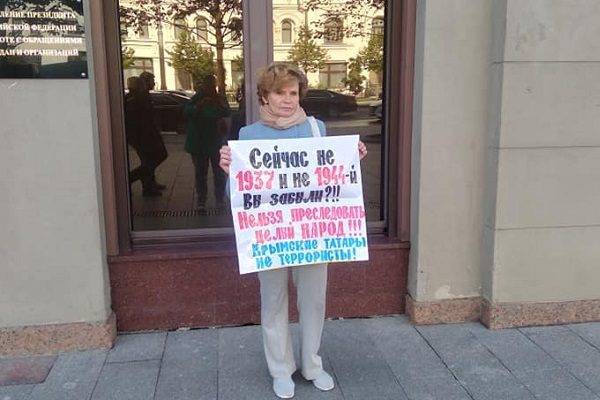 ЛЕНИЕ ПРЕЗИДЕНТА
ИЙСКОЙ ФЕДЕРАЦИИ
ОТЕ С ОБРАЩЕНИЯМИ
ДАН И ОРГАНИЗАЦИЙ
Сейчас не
1937 и не 1944-й
Вы забыли?!!
Нельзя преследовать
целый НАРОД!!!
Крымские татары
не террористы!